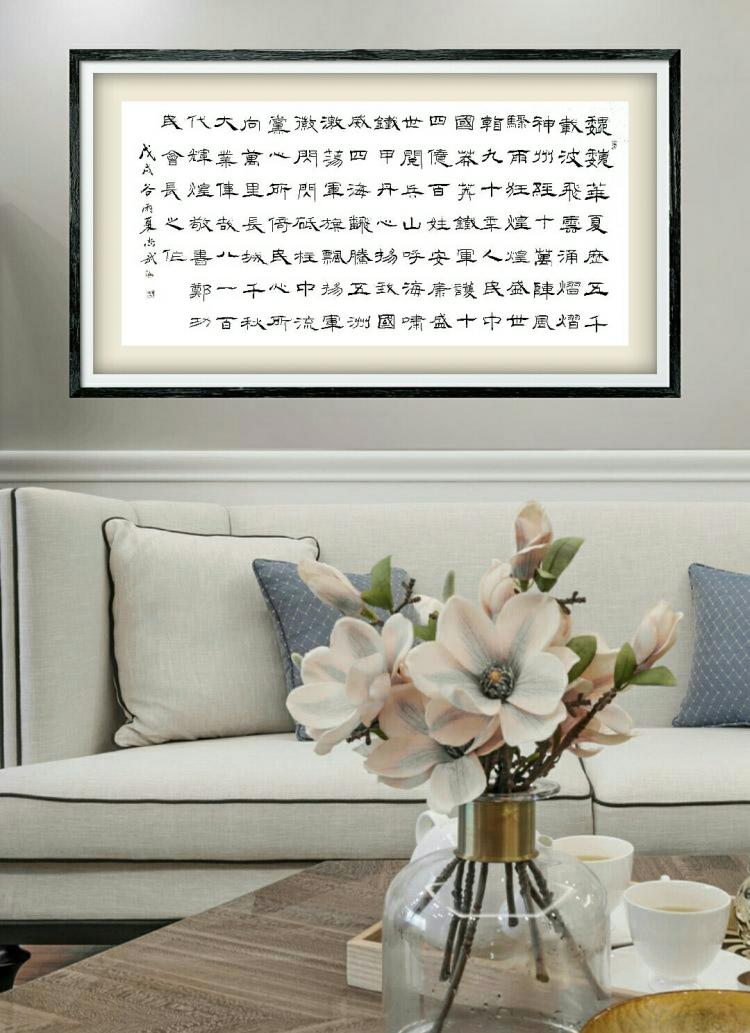 巍巍華夏歷五千
載波飛雲涌熠熠
神州經十萬陣風
驟雨狂煌煌盛世
軒九十年人民中
國莽莽鐵軍護十
四億百姓安康盛
世閱兵山呼海嘯
鐵甲丹心揚我國
威四海飜騰五洲
激蕩軍旗飄揚軍
徽閃閃砥柱中流
黨心所倚民心所
向萬里長城千秋
大業偉哉八一百
代輝煌敬書鄭功
民會長之作
戊戌谷雨夏尚武